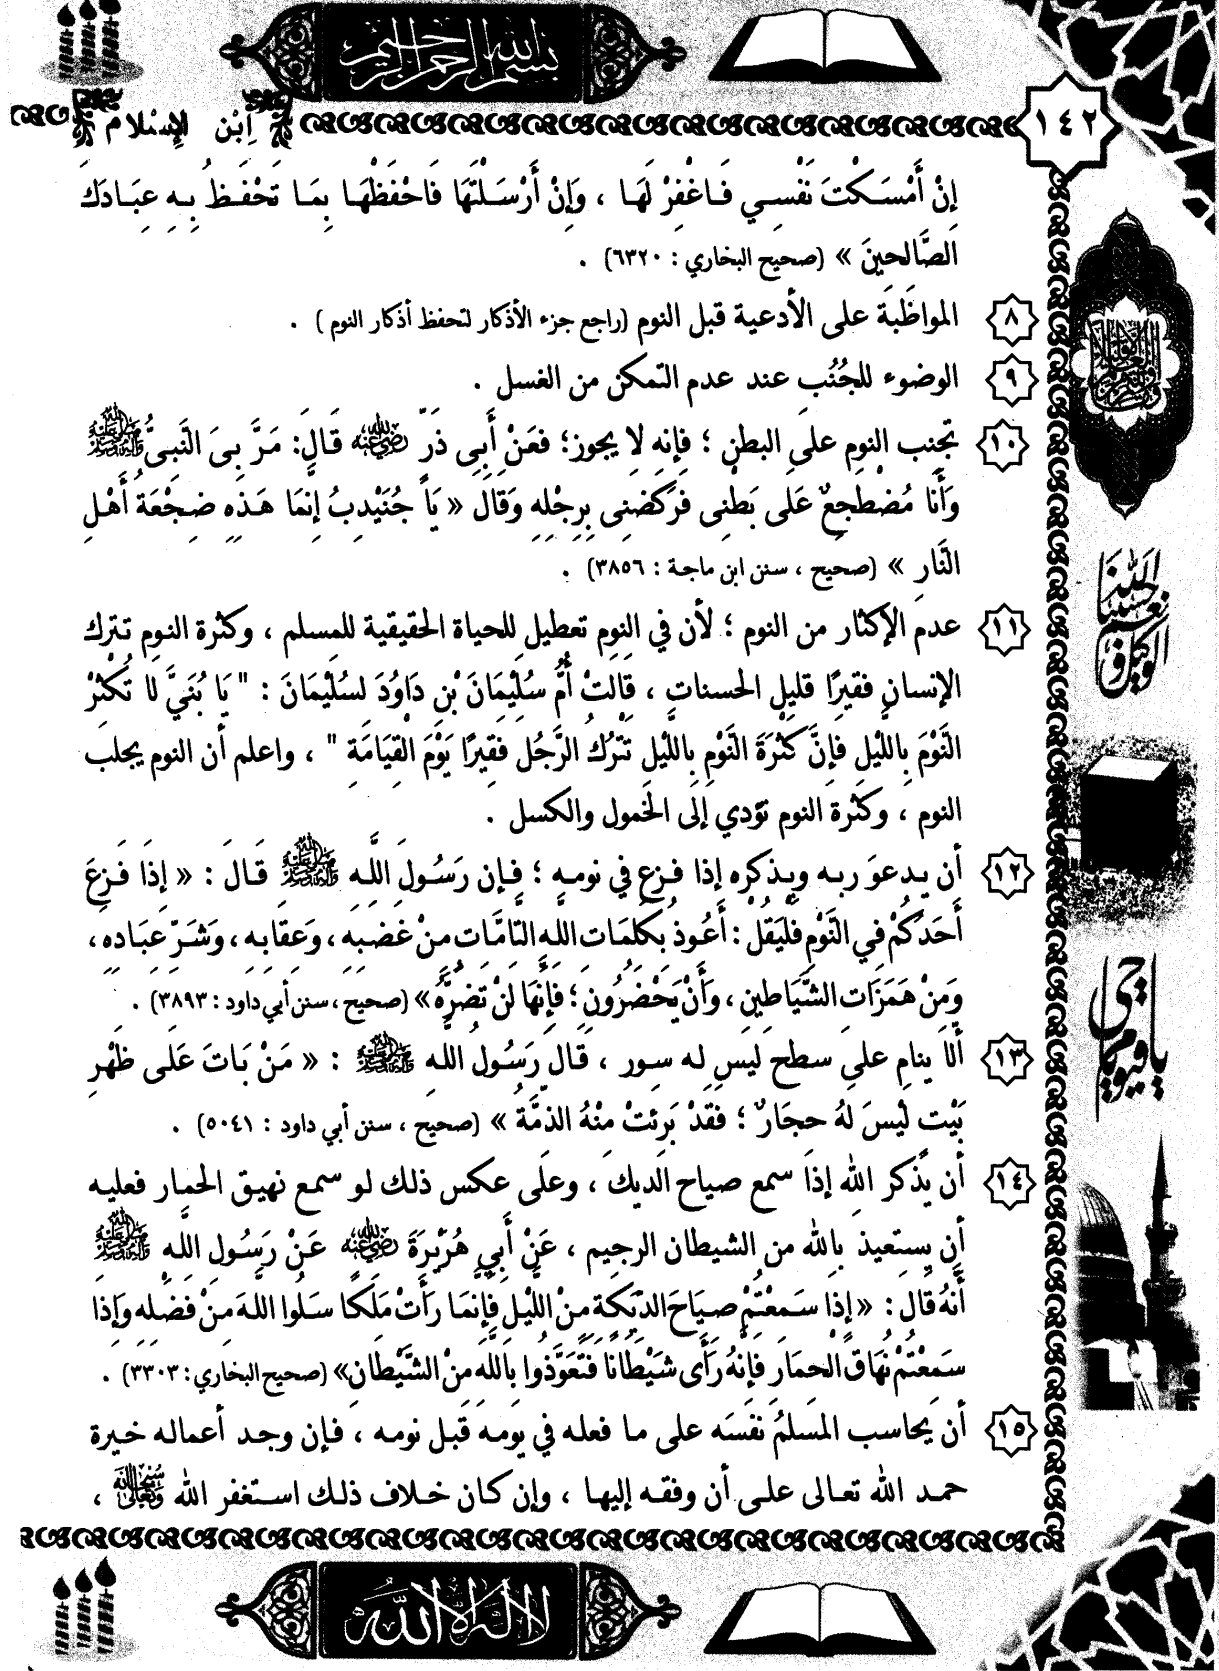 بسم الله الرحمن الرحيم
١٤٢
اِبْن الإِسْلام
إِنْ أَمْسَكْتَ نَفْسِي فَاغْفِرْ لَهَا ، وَإِنْ أَرْسَلْتَهَا فَاحْفَظْهَا بِمَا تَحْفَظُ بِهِ عِبَادَكَ
الصَّالِحِينَ » (صحيح البخاري : ٦٣٢٠) .
٨ المواظَبَة على الأدعية قبل النوم (راجع جزء الأذكار لتحفظ أذكار النوم ) .
٩ الوضوء للجُنُب عند عدم التمكن من الغسل .
١٠ تجنب النوم على البطن ؛ فإنه لا يجوز؛ فعَنْ أَبِى ذَرٍّ رضي الله عنه قَالَ: مَرَّ بِىَ النَّبِىُّ ﷺ
وَأَنَا مُضْطَجِعٌ عَلَى بَطْنِى فَرَكَضَنِى بِرِجْلِهِ وَقَالَ « يَا جُنَيْدِبُ إِنَّمَا هَذِهِ ضِجْعَةُ أَهْلِ
النَّارِ » (صحيح ، سنن ابن ماجة : ٣٨٥٦) .
١١ عدم الإكثار من النوم ؛ لأن في النوم تعطيل للحياة الحقيقية للمسلم ، وكثرة النوم تترك
الإنسان فقيرًا قليل الحسنات ، قَالَتْ أُمُّ سُلَيْمَانَ بْنِ دَاوُدَ لِسُلَيْمَانَ : " يَا بُنَيَّ لا تُكْثِرْ
النَّوْمَ بِاللَّيْلِ فَإِنَّ كَثْرَةَ النَّوْمِ بِاللَّيْلِ تَتْرُكُ الرَّجُلَ فَقِيرًا يَوْمَ الْقِيَامَةِ " ، واعلم أن النوم يجلب
النوم ، وكثرة النوم تؤدي إلى الخمول والكسل .
١٢ أن يدعوَ ربه ويذكره إذا فزع في نومه ؛ فإن رَسُولَ اللَّهِ ﷺ قَالَ : « إِذَا فَزِعَ
أَحَدُكُمْ فِي النَّوْمِ فَلْيَقُلْ : أَعُوذُ بِكَلِمَاتِ اللهِ التَّامَّاتِ مِنْ غَضَبِهِ ، وَعِقَابِهِ ، وَشَرِّ عِبَادِهِ ،
وَمِنْ هَمَزَاتِ الشَّيَاطِينِ ، وَأَنْ يَحْضُرُونِ ؛ فَإِنَّهَا لَنْ تَضُرَّهُ» (صحيح ، سنن أبي داود : ٣٨٩٣) .
١٣ ألا ينام على سطح ليس له سور ، قَالَ رَسُولُ اللهِ ﷺ : « مَنْ بَاتَ عَلَى ظَهْرِ
بَيْتٍ لَيْسَ لَهُ حِجَارٌ ؛ فَقَدْ بَرِئَتْ مِنْهُ الذِّمَّةُ » (صحيح ، سنن أبي داود : ٥٠٤١) .
١٤ أن يَذكر الله إذا سمع صياح الديك ، وعلى عكس ذلك لو سمع نهيق الحمار فعليه
أن يستعيذ بالله من الشيطان الرجيم ، عَنْ أَبِي هُرَيْرَةَ رضي الله عنه عَنْ رَسُولِ اللَّهِ ﷺ
أَنَّهُ قَالَ : « إِذَا سَمِعْتُمْ صِيَاحَ الدِّيَكَةِ مِنَ اللَّيْلِ فَإِنَّمَا رَأَتْ مَلَكًا سَلُوا اللهَ مِنْ فَضْلِهِ وَإِذَا
سَمِعْتُمْ نُهَاقَ الحِمَارِ فَإِنَّهُ رَأَى شَيْطَانًا فَتَعَوَّذُوا بِاللهِ مِنَ الشَّيْطَانِ» (صحيح البخاري : ٣٣٠٣) .
١٥ أن يُحاسب المسلمُ نفسَه على ما فعله في يومه قبل نومه ، فإن وجد أعماله خيرة
حمد الله تعالى على أن وفقه إليها ، وإن كان خلاف ذلك استغفر الله سبحانه وتعالى ،
حسبنا الله ونعم الوكيل
يا حي يا قيوم
لا إله إلا الله